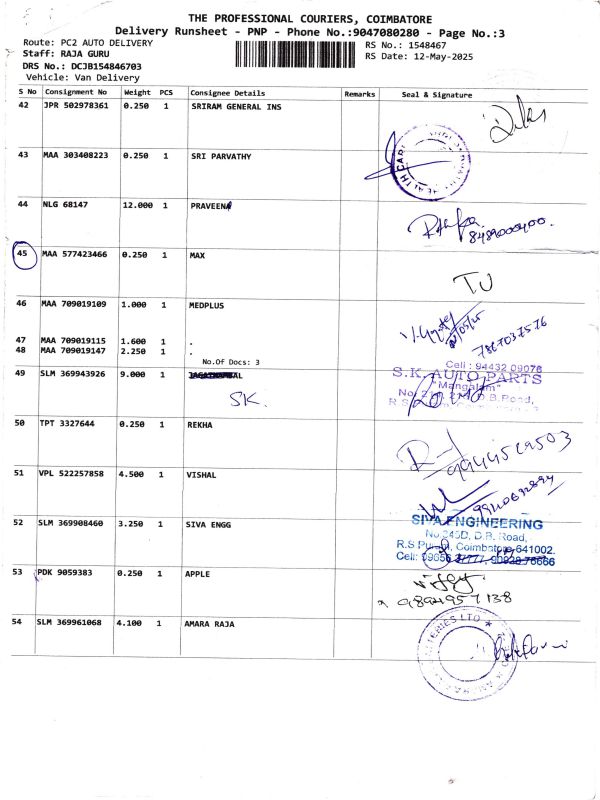 THE PROFESSIONAL COURIERS, COIMBATORE
Delivery Runsheet - PNP - Phone No.:9047080280 - Page No.:3
Route: PC2 AUTO DELIVERY
Staff: RAJA GURU
DRS No.: DCJB154846703
Vehicle: Van Delivery
RS No.: 1548467
RS Date: 12-May-2025
S No Consignment No Weight PCS Consignee Details Remarks Seal & Signature
42 JPR 502978361 0.250 1 SRIRAM GENERAL INS
43 MAA 303408223 0.250 1 SRI PARVATHY
44 NLG 68147 12.000 1 PRAVEENA
8489000400.
45 MAA 577423466 0.250 1 MAX
46 MAA 709019109 1.000 1 MEDPLUS
47 MAA 709019115 1.600 1 .
48 MAA 709019147 2.250 1 .
No.Of Docs: 3
Cell : 94432 09076
49 SLM 369943926 9.000 1
S.K. AUTO PARTS
"Mangalam"
D.B.Road,
SK.
50 TPT 3327644 0.250 1 REKHA
51 VPL 522257858 4.500 1 VISHAL
52 SLM 369908460 3.250 1 SIVA ENGG
SIVA ENGINEERING
No.345D, D.B. Road,
R.S Puram, Coimbatore-641002.
53 PDK 9059383 0.250 1 APPLE
54 SLM 369961068 4.100 1 AMARA RAJA